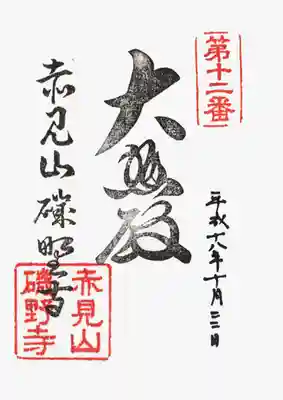 第十二番
平成十八年十月二三日
大悲殿
赤見山 磯野寺
赤見山
磯野寺